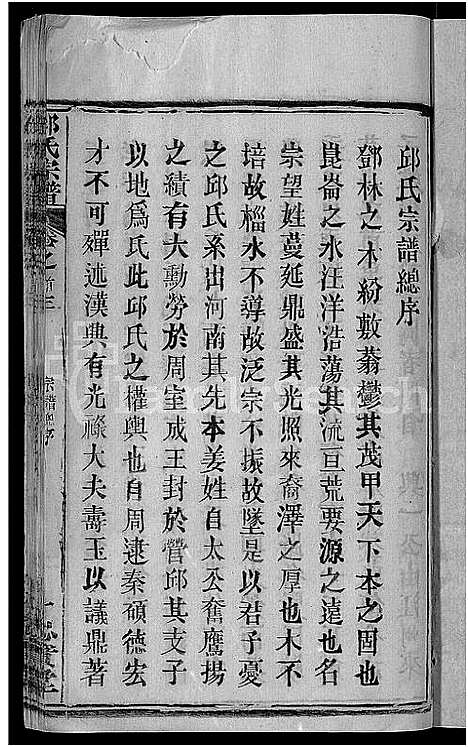 邱氏宗譜總序
鄧林之木紛敷蓊鬱其茂甲天下本之固也
崑崙之水汪洋浩蕩其流亘荒要源之遠也名
崇望姓蔓延鼎盛其光照來裔澤之厚也木不
培故橊水不導故泛宗不振故墜是以君子憂
之邱氏系出河南其先本姜姓自太公奮鷹揚
之績有大勳勞於周室成王封於營邱其支子
以地爲氏此邱氏之權輿也自周逮秦碩德宏
才不可殫述漢興有光祿大夫壽玉以議鼎著
邱氏宗譜
卷之首三
宗譜總序